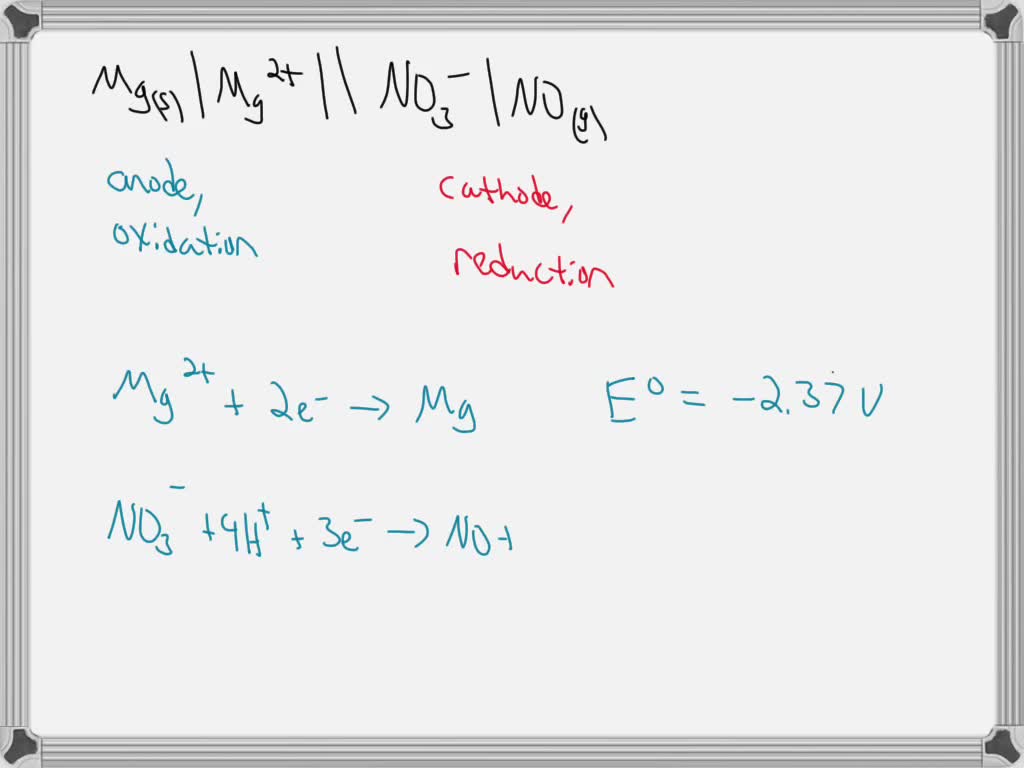 Mg(s) | Mg²⁺ || NO₃⁻ | NO(g)
anode,
oxidation
cathode,
reduction
Mg²⁺ + 2e⁻ → Mg E⁰ = -2.37 V
NO₃⁻ + 4H⁺ + 3e⁻ → NO +